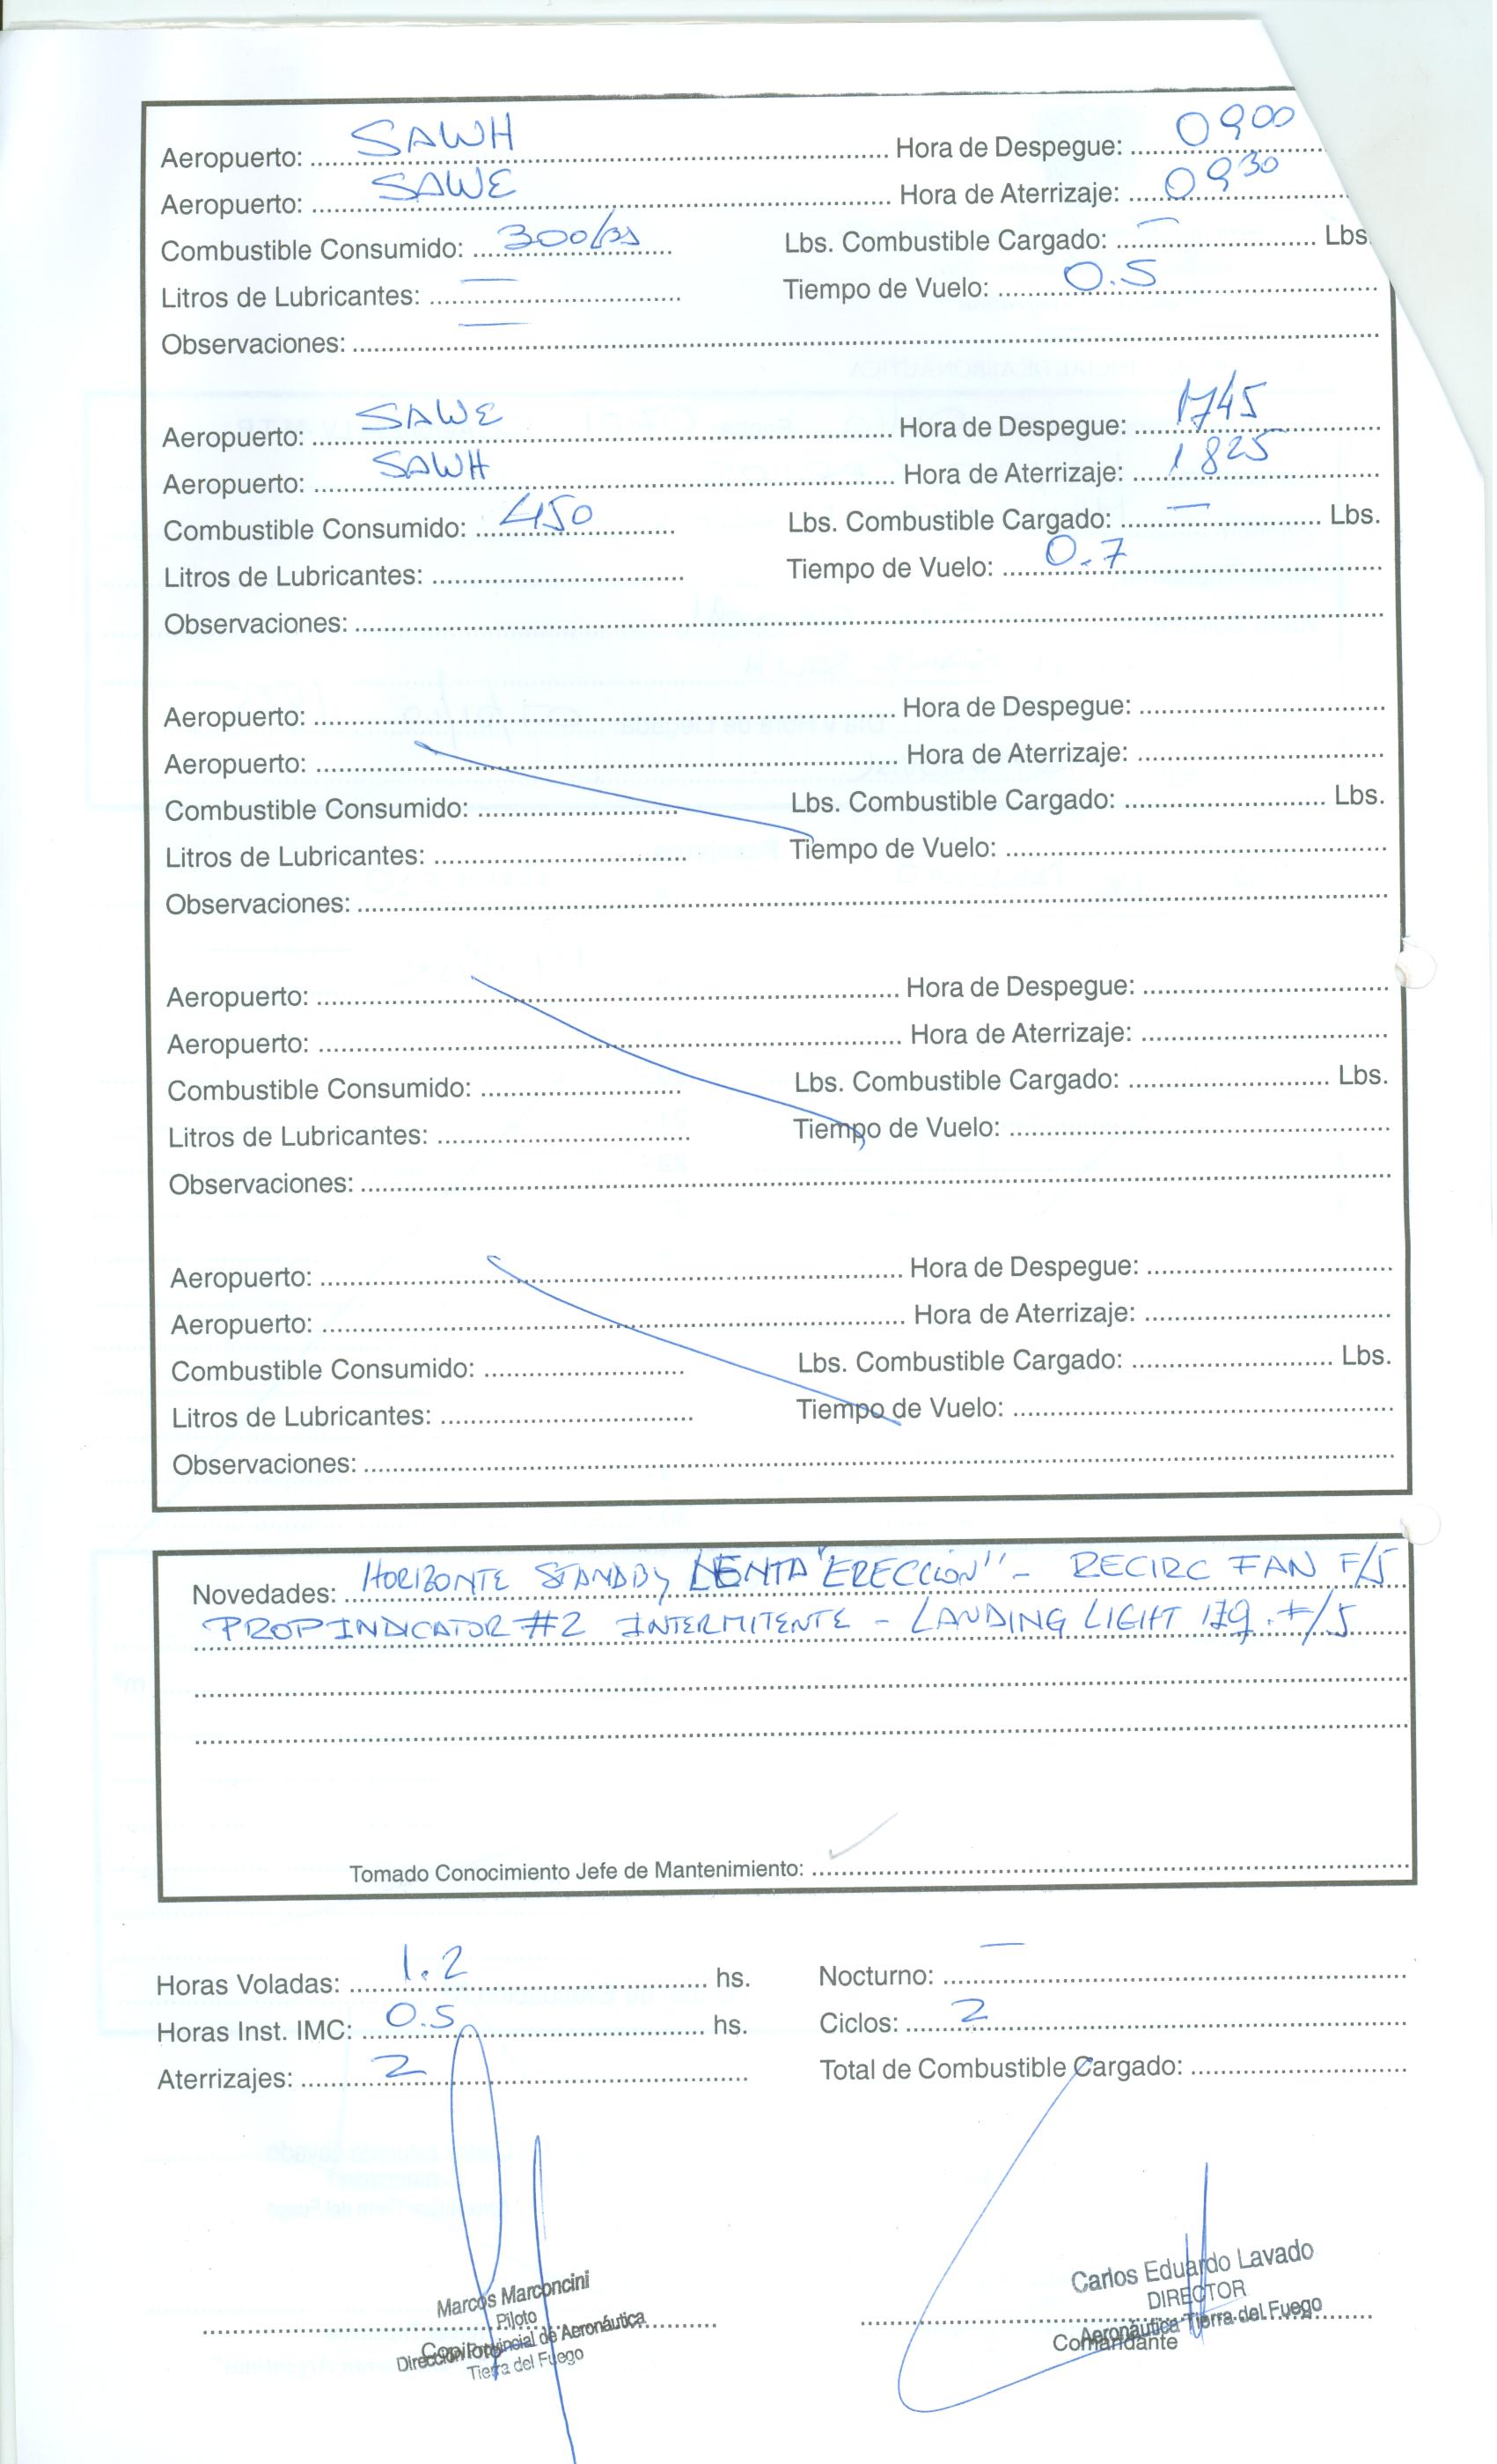 Aeropuerto: SAWH Hora de Despegue: 0900
Aeropuerto: SAWE Hora de Aterrizaje: 0930
Combustible Consumido: 300lbs Lbs. Combustible Cargado: — Lbs.
Litros de Lubricantes: — Tiempo de Vuelo: 0.5
Observaciones: —
Aeropuerto: SAWE Hora de Despegue: 1745
Aeropuerto: SAWH Hora de Aterrizaje: 1825
Combustible Consumido: 450 Lbs. Combustible Cargado: — Lbs.
Litros de Lubricantes: Tiempo de Vuelo: 0.7
Observaciones:
Aeropuerto: Hora de Despegue:
Aeropuerto: Hora de Aterrizaje:
Combustible Consumido: Lbs. Combustible Cargado: Lbs.
Litros de Lubricantes: Tiempo de Vuelo:
Observaciones:
Aeropuerto: Hora de Despegue:
Aeropuerto: Hora de Aterrizaje:
Combustible Consumido: Lbs. Combustible Cargado: Lbs.
Litros de Lubricantes: Tiempo de Vuelo:
Observaciones:
Aeropuerto: Hora de Despegue:
Aeropuerto: Hora de Aterrizaje:
Combustible Consumido: Lbs. Combustible Cargado: Lbs.
Litros de Lubricantes: Tiempo de Vuelo:
Observaciones:
Novedades: HORIZONTE STANDBY LENTA "ERECCIÓN" - RECIRC FAN F/S
PROP INDICATOR #2 INTERMITENTE - LANDING LIGHT IZQ. F/S
Tomado Conocimiento Jefe de Mantenimiento:
Horas Voladas: 1.2 hs. Nocturno: —
Horas Inst. IMC: 0.5 hs. Ciclos: 2
Aterrizajes: 2 Total de Combustible Cargado:
Marcos Marconcini
Piloto
Copiloto
Dirección Provincial de Aeronáutica
Tierra del Fuego
Carlos Eduardo Lavado
DIRECTOR
Aeronáutica Tierra del Fuego
Comandante